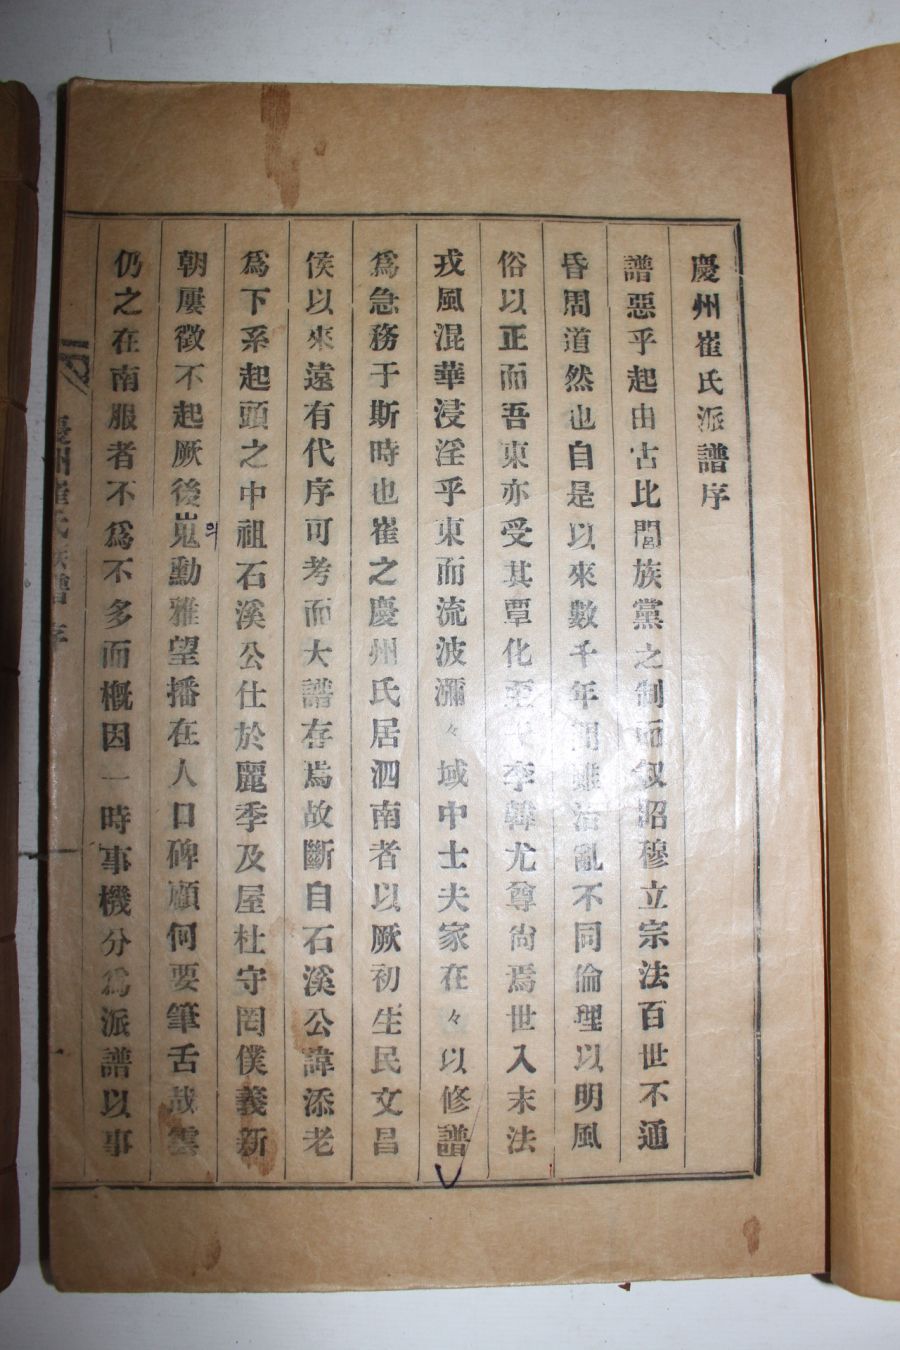 慶州崔氏派譜序
譜惡乎起由古比閭族黨之制而叙昭穆立宗法百世不通
昏周道然也自是以來數千年間雖治亂不同倫理以明風
俗以正而吾東亦受其覃化至于李韓尤尊尙焉世入末法
戎風混華浸淫乎東而流波瀰々域中士夫家在々以修譜
爲急務于斯時也崔之慶州氏居泗南者以厥初生民文昌
侯以來遠有代序可考而大譜存焉故斷自石溪公諱添老
爲下系起頭之中祖石溪公仕於麗季及屋杜守罔僕義新
朝屢徵不起厥後嵬勳雅望播在人口碑顧何要筆舌哉雲
의
仍之在南服者不爲不多而槪因一時事機分爲派譜以事
慶州崔氏族譜 序